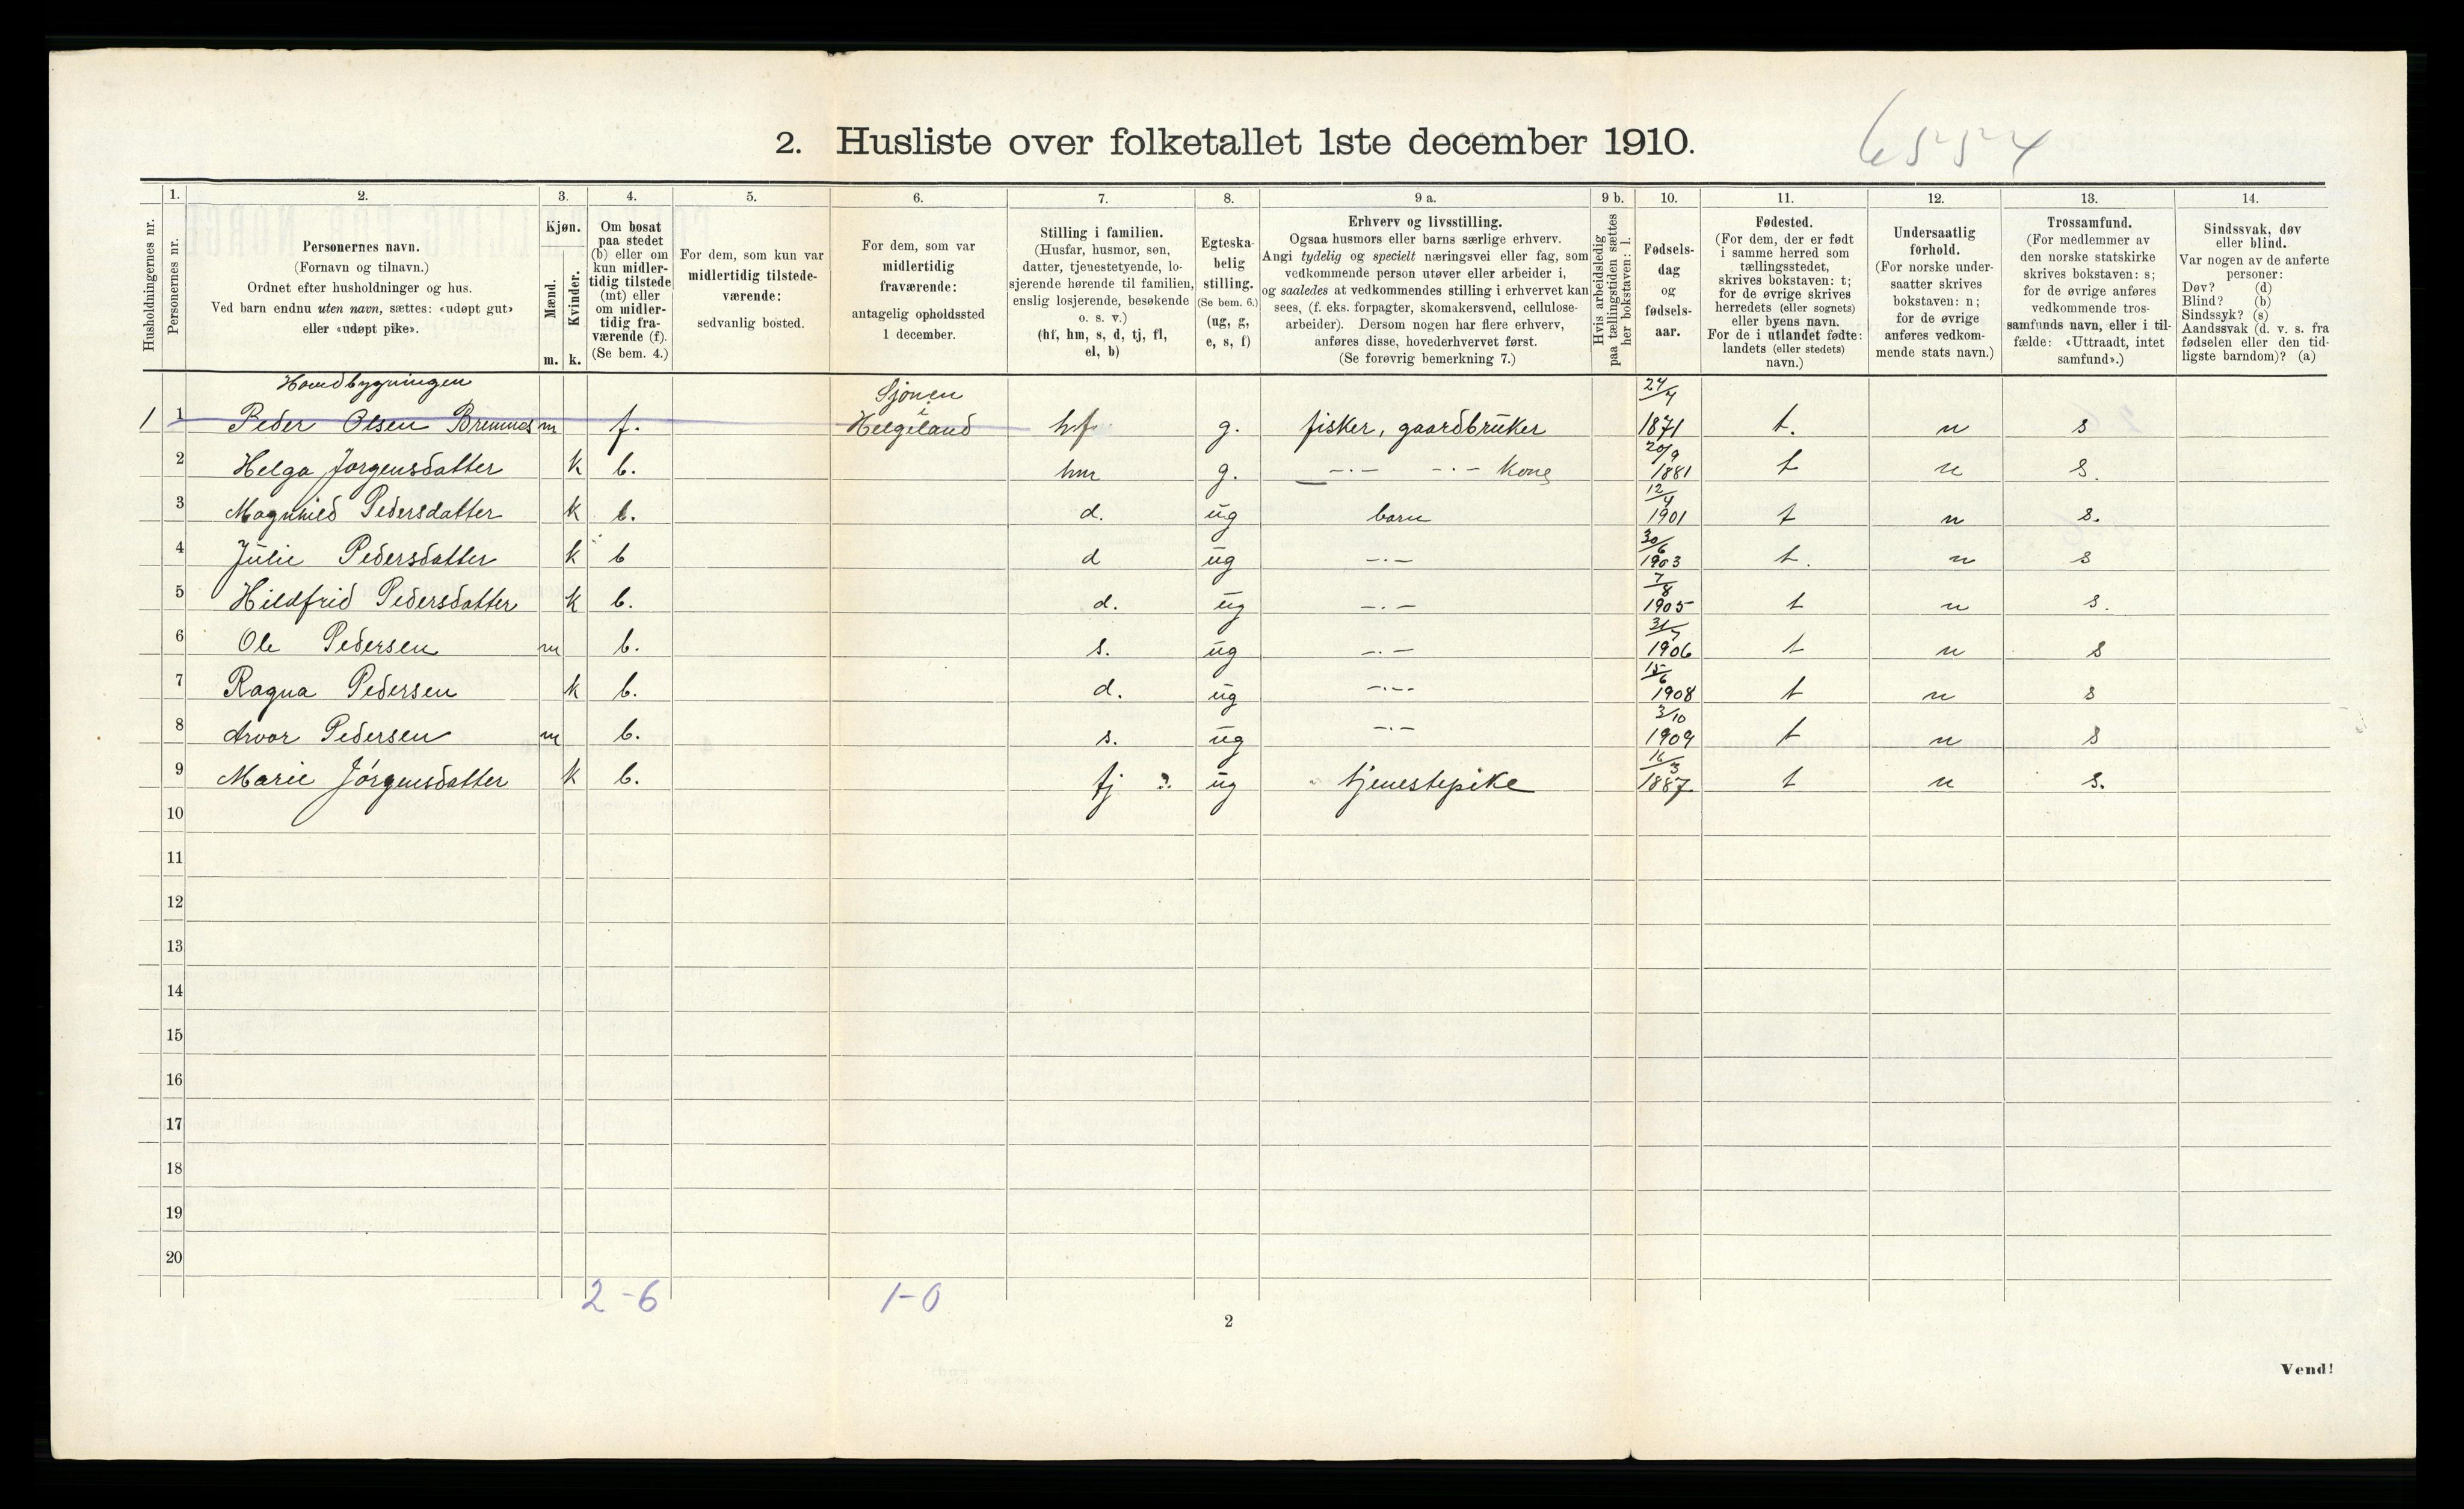 2. Husliste over folketallet 1ste december 1910.
6554
Husholdningernes nr.
1.
Personernes nr.
2.
Personernes navn.
(Fornavn og tilnavn.)
Ordnet efter husholdninger og hus.
Ved barn endnu uten navn, sættes: «udøpt gut»
eller «udøpt pike».
3.
Kjøn.
Mænd.
m.
Kvinder.
k.
4.
Om bosat
paa stedet
(b) eller om
kun midler-
tidig tilstede
(mt) eller
om midler-
tidig fra-
værende (f).
(Se bem. 4.)
5.
For dem, som kun var
midlertidig tilstede-
værende:
sedvanlig bosted.
6.
For dem, som var
midlertidig
fraværende:
antagelig opholdssted
1 december.
7.
Stilling i familien.
(Husfar, husmor, søn,
datter, tjenestetyende, lo-
sjerende hørende til familien,
enslig losjerende, besøkende
o. s. v.)
(hf, hm, s, d, tj, fl,
el, b)
8.
Egteska-
belig
stilling.
(Se bem. 6.)
(ug, g,
e, s, f)
9 a.
Erhverv og livsstilling.
Ogsaa husmors eller barns særlige erhverv.
Angi tydelig og specielt næringsvei eller fag, som
vedkommende person utøver eller arbeider i,
og saaledes at vedkommendes stilling i erhvervet kan
sees, (f. eks. forpagter, skomakersvend, cellulose-
arbeider). Dersom nogen har flere erhverv,
anføres disse, hovederhvervet først.
(Se forøvrig bemerkning 7.)
9 b.
Hvis arbeidsledig
paa tællingstiden sættes
her bokstaven: l.
10.
Fødsels-
dag
og
fødsels-
aar.
11.
Fødested.
(For dem, der er født
i samme herred som
tællingsstedet,
skrives bokstaven: t;
for de øvrige skrives
herredets (eller sognets)
eller byens navn.
For de i utlandet fødte:
landets (eller stedets)
navn.)
12.
Undersaatlig
forhold.
(For norske under-
saatter skrives
bokstaven: n;
for de øvrige
anføres vedkom-
mende stats navn.)
13.
Trossamfund.
(For medlemmer av
den norske statskirke
skrives bokstaven: s;
for de øvrige anføres
vedkommende tros-
samfunds navn, eller i til-
fælde: «Uttraadt, intet
samfund».)
14.
Sindssvak, døv
eller blind.
Var nogen av de anførte
personer:
Døv? (d)
Blind? (b)
Sindssyk? (s)
Aandssvak (d. v. s. fra
fødselen eller den tid-
ligste barndom)? (a)
Hovedbygningen
1 1 Peder Olsen Bremnes m f. Sjonen i Helgeland hf. g. fisker, gaardbruker 24/4 1871 t. n s
2 Helga Jorgensdatter k b. hm g. —·— —·— kone 20/9 1881 t n s.
3 Magnhild Pedersdatter k b. d. ug barn 12/4 1901 t n s.
4 Julie Pedersdatter k b d ug —·— 30/6 1903 t. n s
5 Hildfrid Pedersdatter k b. d. ug —·— 7/8 1905 t n s.
6 Ole Pedersen m b. s. ug —·— 31/7 1906 t n s
7 Ragna Pedersen k b. d. ug —·— 15/6 1908 t n s
8 Arvor Pedersen m b. s. ug —·— 3/10 1909 t n s
9 Marie Jörgensdatter k b. tj ug tjenestepike 16/3 1887 t n s.
10
11
12
13
14
15
16
17
18
19
20
2-6 1-0
2
Vend!